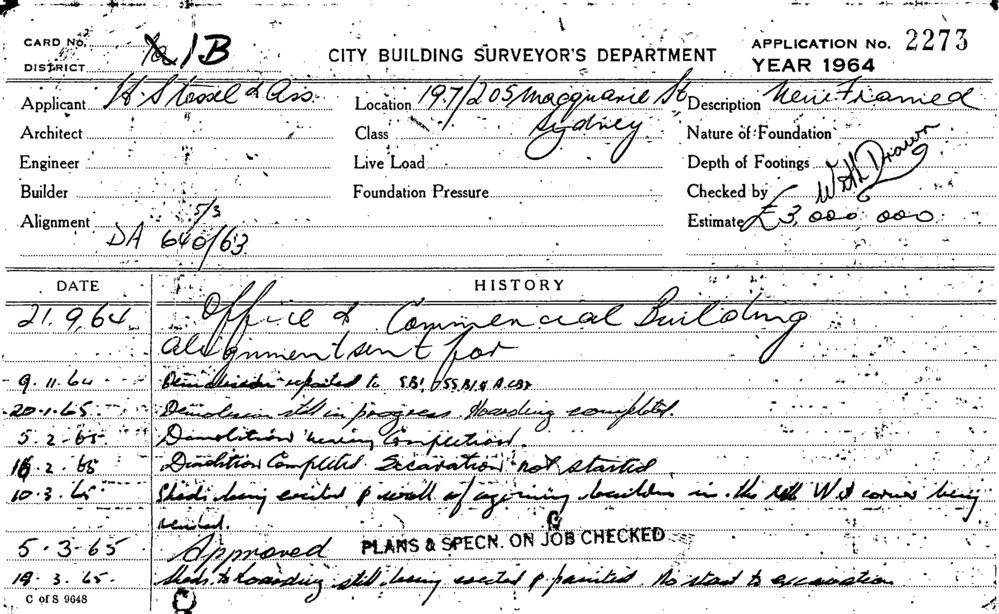 CARD No. 1B
DISTRICT
CITY BUILDING SURVEYOR'S DEPARTMENT
APPLICATION No. 2273
YEAR 1964
Applicant H. Stossel & Ass.
Location 197/205 Macquarie St Sydney
Description New Framed
Architect
Class
Nature of Foundation
Engineer
Live Load
Depth of Footings
Builder
Foundation Pressure
Checked by
With Drawn
Alignment 5/3
Estimate £3,000 000
DA 640/63
DATE
HISTORY
21.9.64 Office & Commercial Building
alignment sent for
9.11.64 Demolition reported to
20.1.65 Demolition still in progress. Hoarding completed.
5.2.65 Demolition nearing Completion.
16.2.65 Demolition Completed. Excavation not started
10.3.65 Sheds being erected & wall of building in the West corner being
5.3.65 Approved PLANS & SPECN. ON JOB CHECKED
19.3.65 Sheds & hoarding still being erected & painted. No start to excavation
C of S 9648